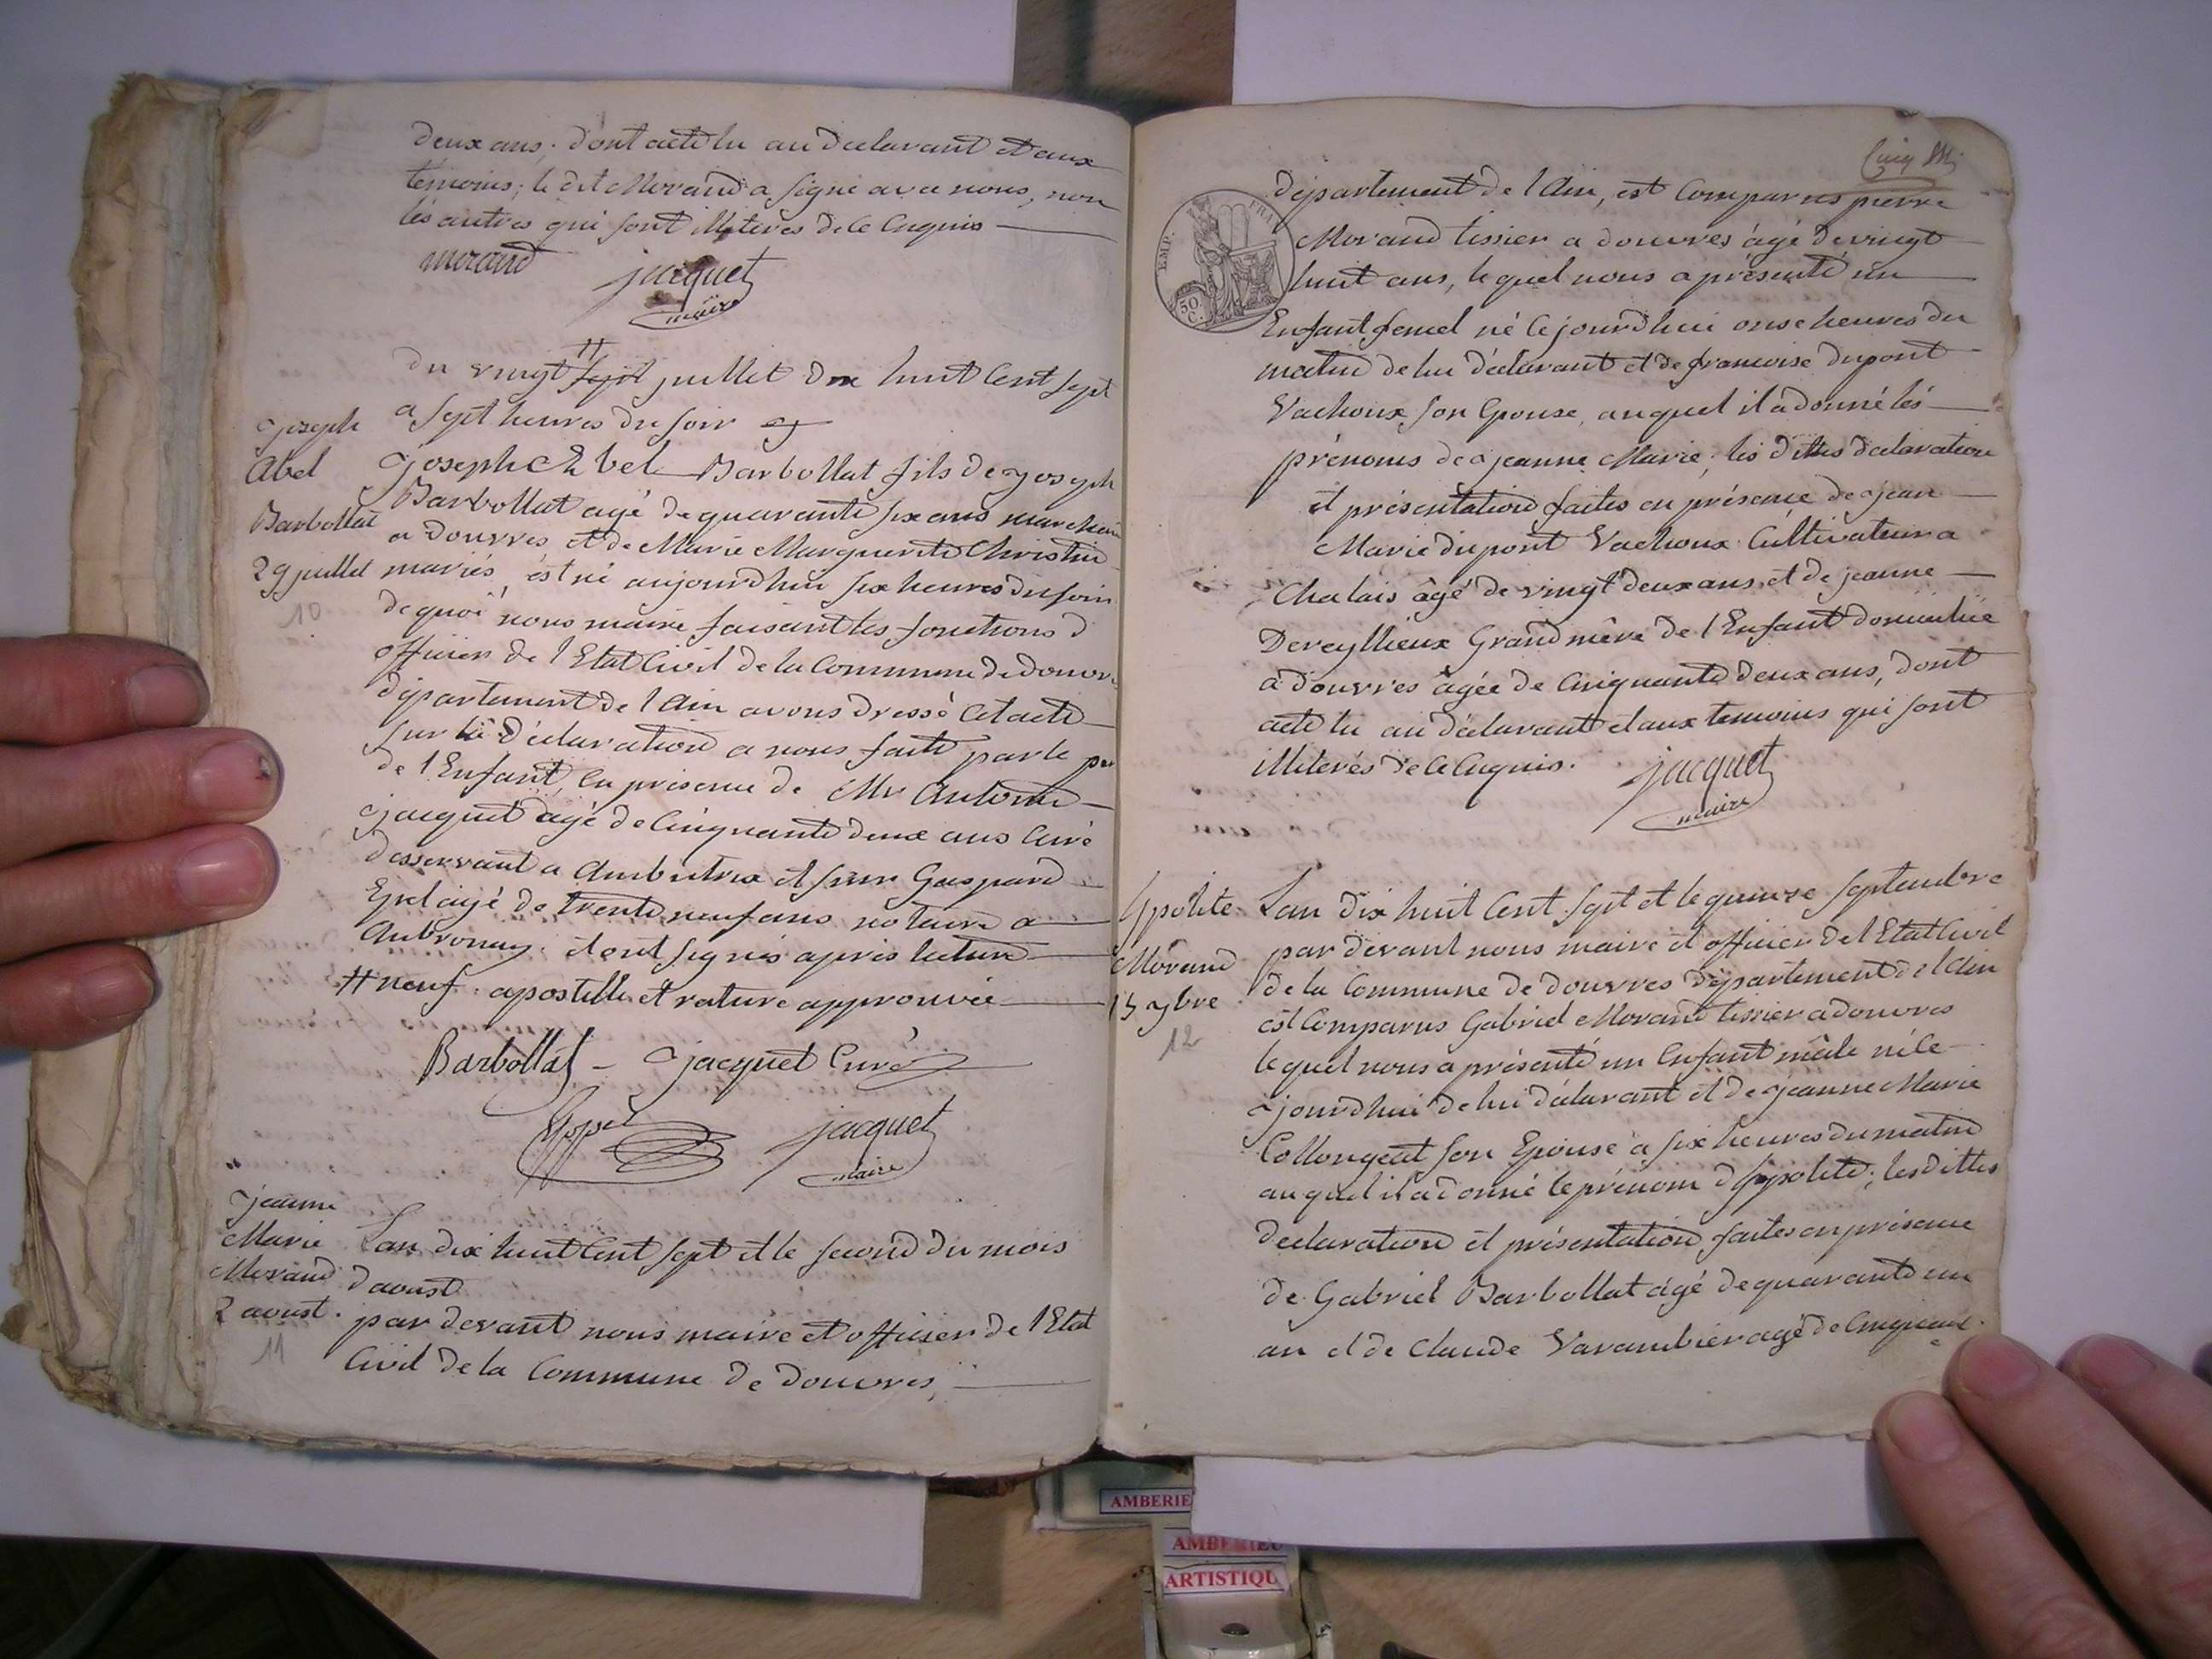 deux ans; dont acte lu au declarant et aux
temoins; le dit Morand a signé avec nous, non
lés autres qui sont illiterés de ce enquis
morand jacquet
maire
du vingt sept juillet dix huit cent sept
a sept heures du soir
joseph
Abel
Barbollat
29 juillet
10
joseph Abel Barbollat fils de joseph
Barbollat agé de quarante six ans marchand
a douvres et de Marie Marguerite Christin
mariés, est né aujourdhui six heures du soir
de quoi nous maire faisant les fonctions d
officier de l'Etat Civil de la Commune de douvres
département de l'Ain avons dressé cet acte
sur la déclaration a nous faite par le
de l'Enfant, en présence de Mr Antoine
jacquet agé de Cinquante deux ans Curé
desservant a Ambutrix et sieur Gaspard
agé de trente neuf ans notaire a
Ambronay, et ont signés après lecture
# neuf. apostille et rature approuvée
Barbollat - jacquet Curé
jacquet
maire
jeanne
Marie
Morand
2 aoust.
11
Lan dix huit Cent sept et le second du mois
d aoust
par devant nous maire et officier de l'Etat
Civil de la Commune de douvres,
département de l'Ain, est Comparus pierre
Morand tissier a douvres âgé de vingt
huit ans, lequel nous a présenté un
Enfant femel né ce jourdhui onse heures du
matin de lui déclarant et de francoise dupont
Vachoux son Epouse, auquel il a donné lés
prénoms de jeanne Marie; les dittes declaration
et présentation faites en présence de jean
Marie dupont Vachoux Cultivateur a
Chalais âgé de vingt deux ans et de jeanne
Dereyllieux Grand mère de l'Enfant domiciliée
a douvres âgée de Cinquante deux ans, dont
acte lu au déclarant et aux temoins qui sont
illiterés de ce enquis.
jacquet
maire
EMP.
FRA
50
C.
Ippolite
Morand
15 7bre
12
Lan dix huit Cent sept et le quinze septembre
par devant nous maire et officier de l'Etat Civil
de la Commune de douvres département de l'Ain
est Comparus Gabriel Morand tissier a douvres
lequel nous a présenté un Enfant mâle né ce
jourdhui de lui déclarant et de jeanne Marie
Collongeat son Epouse a six heures du matin
auquel il a donné le prénom d Ippolite; les dittes
declaration et présentation faites en présence
de Gabriel Barbollat âgé de quarante un
an et de Claude Varambier agé de Cinquante
AMBERIE
AMBERIEU
ARTISTIQU